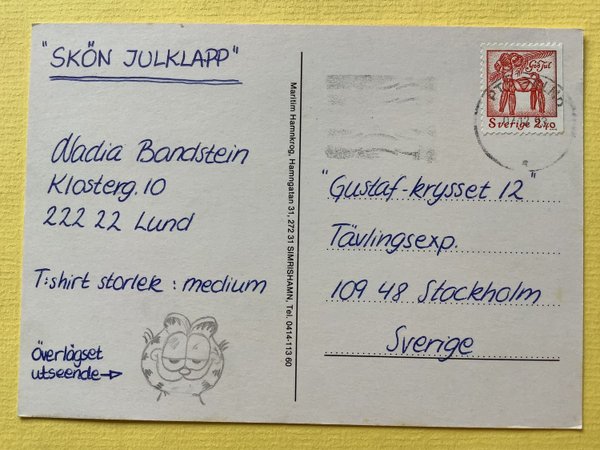 "SKÖN JULKLAPP"
Nadia Bandstein
Klosterg. 10
222 22 Lund
T:shirt storlek : medium
Överlägset
utseende→
Maritim Hamnkrog, Hamngatan 31, 272 31 SIMRISHAMN, Tel. 0414-113 60
God Jul
Sverige 2.40
"Gustaf-krysset 12"
Tävlingsexp.
109 48 Stockholm
Sverige